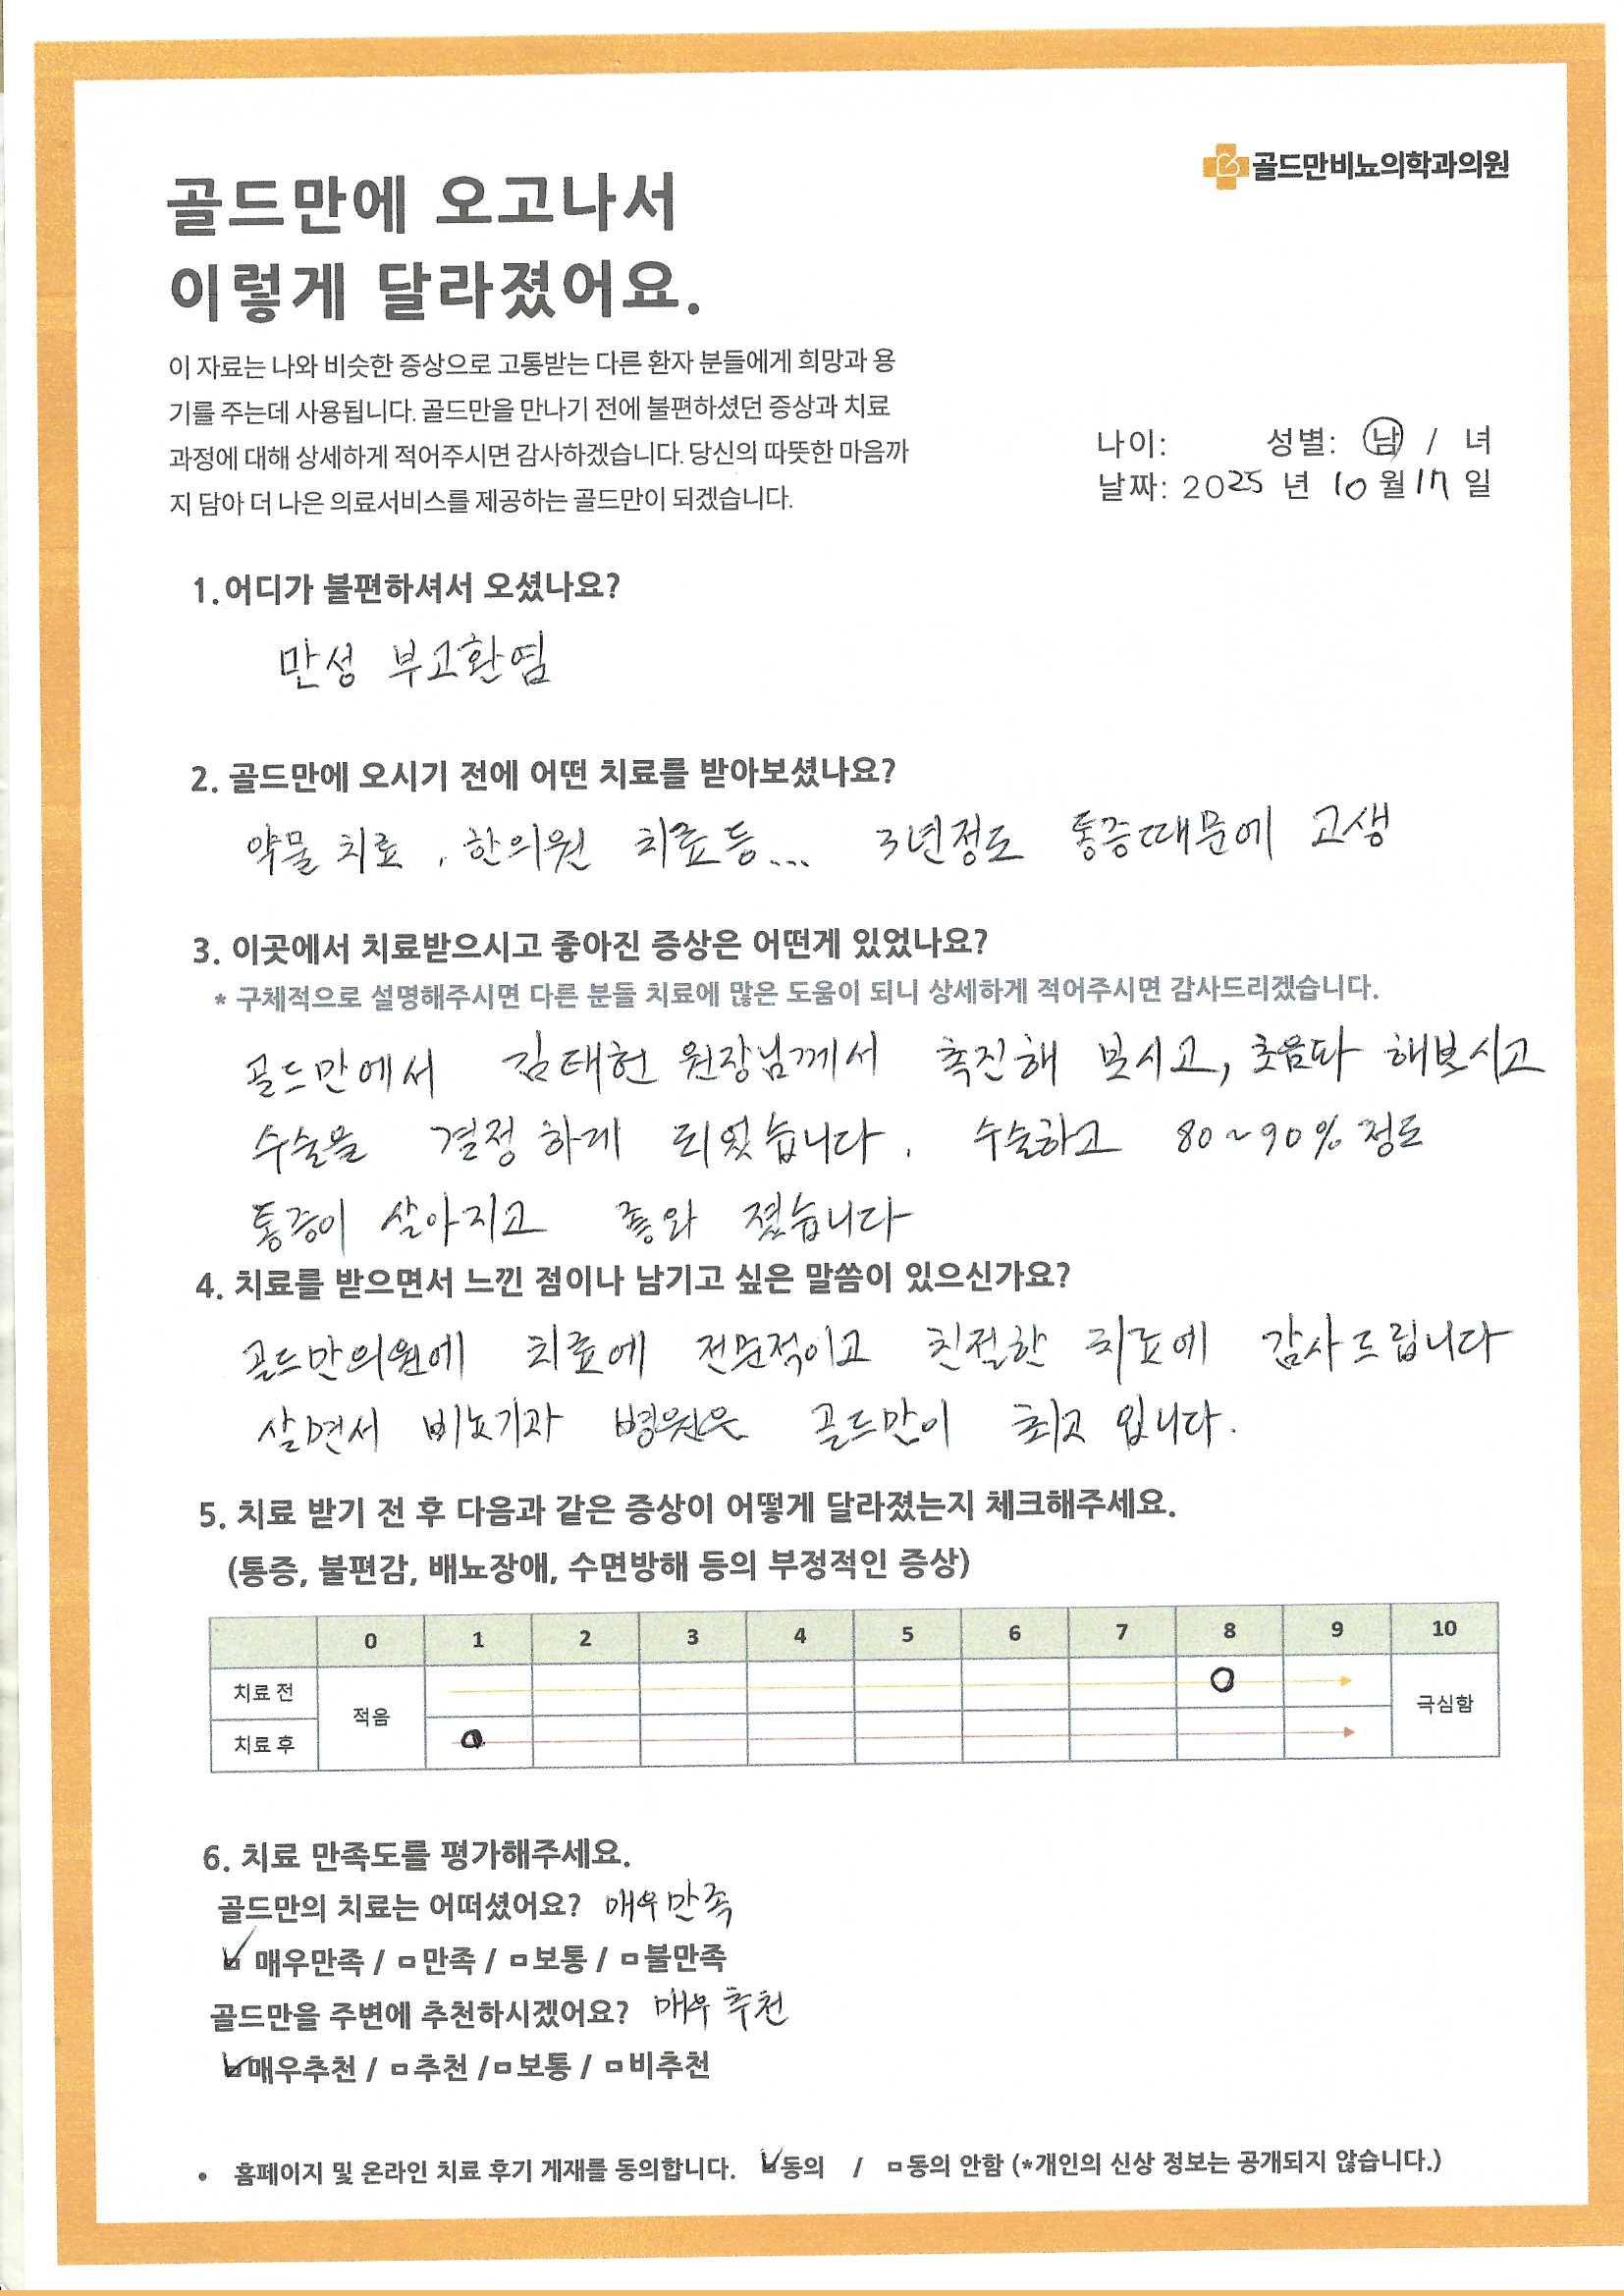 골드만비뇨의학과의원
골드만에 오고나서
이렇게 달라졌어요.
이 자료는 나와 비슷한 증상으로 고통받는 다른 환자 분들에게 희망과 용
기를 주는데 사용됩니다. 골드만을 만나기 전에 불편하셨던 증상과 치료
과정에 대해 상세하게 적어주시면 감사하겠습니다. 당신의 따뜻한 마음까
지 담아 더 나은 의료서비스를 제공하는 골드만이 되겠습니다.
나이: 성별: 남 / 녀
날짜: 2025 년 10 월 17 일
1. 어디가 불편하셔서 오셨나요?
만성 부고환염
2. 골드만에 오시기 전에 어떤 치료를 받아보셨나요?
약물 치료, 한의원 치료등... 3년정도 통증때문에 고생
3. 이곳에서 치료받으시고 좋아진 증상은 어떤게 있었나요?
* 구체적으로 설명해주시면 다른 분들 치료에 많은 도움이 되니 상세하게 적어주시면 감사드리겠습니다.
골드만에서 김태헌 원장님께서 촉진해 보시고, 초음파 해보시고
수술을 결정 하게 되었습니다. 수술하고 80~90% 정도
통증이 살아지고 좋와 졌습니다
4. 치료를 받으면서 느낀 점이나 남기고 싶은 말씀이 있으신가요?
골드만의원에 치료에 전문적이고 친절한 치료에 감사드립니다
살면서 비뇨기과 병원은 골드만이 최고 입니다.
5. 치료 받기 전 후 다음과 같은 증상이 어떻게 달라졌는지 체크해주세요.
(통증, 불편감, 배뇨장애, 수면방해 등의 부정적인 증상)
0 1 2 3 4 5 6 7 8 9 10
치료 전 적음 극심함
치료 후
6. 치료 만족도를 평가해주세요.
골드만의 치료는 어떠셨어요? 매우만족
매우만족 / □ 만족 / □ 보통 / □ 불만족
골드만을 주변에 추천하시겠어요? 매우 추천
매우추천 / □ 추천 / □ 보통 / □ 비추천
• 홈페이지 및 온라인 치료 후기 게재를 동의합니다. 동의 / □ 동의 안함 (*개인의 신상 정보는 공개되지 않습니다.)